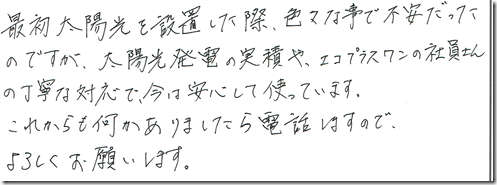 最初太陽光を設置した際、色々な事で不安だった
のですが、太陽光発電の実積や、エコプラスワンの社員さん
の丁寧な対応で、今は安心して使っています。
これからも何かありましたら電話しますので、
よろしくお願いします。